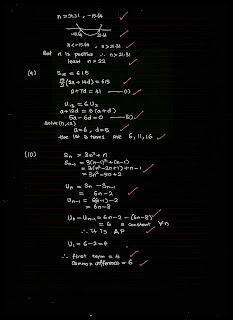 n = 21.31, -15.64
-15.64 21.31
n < -15.64 n > 21.31
But n is positive ∴ n > 21.31
least n = 22
(9) S₁₅ = 615
15/2 (2a + 14d) = 615
a + 7d = 41 —(1)
U₁₃ = 6U₂
a + 12d = 6(a + d)
5a - 6d = 0 —(2)
Solve (1), (2)
a = 6, d = 5
the 1st 3 terms are 6, 11, 16
(10) Sₙ = 3n² + n
Sₙ₋₁ = 3(n-1)² + (n-1)
= 3(n² - 2n + 1) + n - 1
= 3n² - 5n + 2
Uₙ = Sₙ - Sₙ₋₁
= 6n - 2
Uₙ₋₁ = 6(n-1) - 2
= 6n - 8
Uₙ - Uₙ₋₁ = 6n - 2 - (6n - 8)
= 6 a constant ∀n
∴ It is AP
U₁ = 6 - 2 = 4
∴ first term = 4
common difference = 6